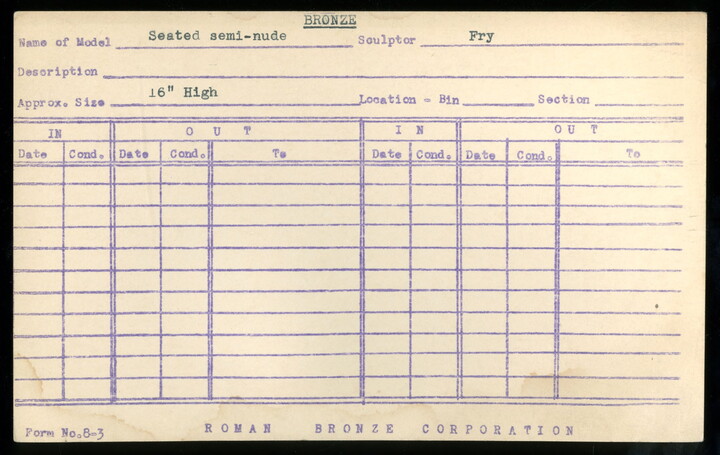 BRONZE
Name of Model Seated semi-nude Sculptor Fry
Description
Approx. Size 16" High Location - Bin Section
IN OUT IN OUT
Date Cond. Date Cond. To Date Cond. Date Cond. To
Form No. 8-3 ROMAN BRONZE CORPORATION